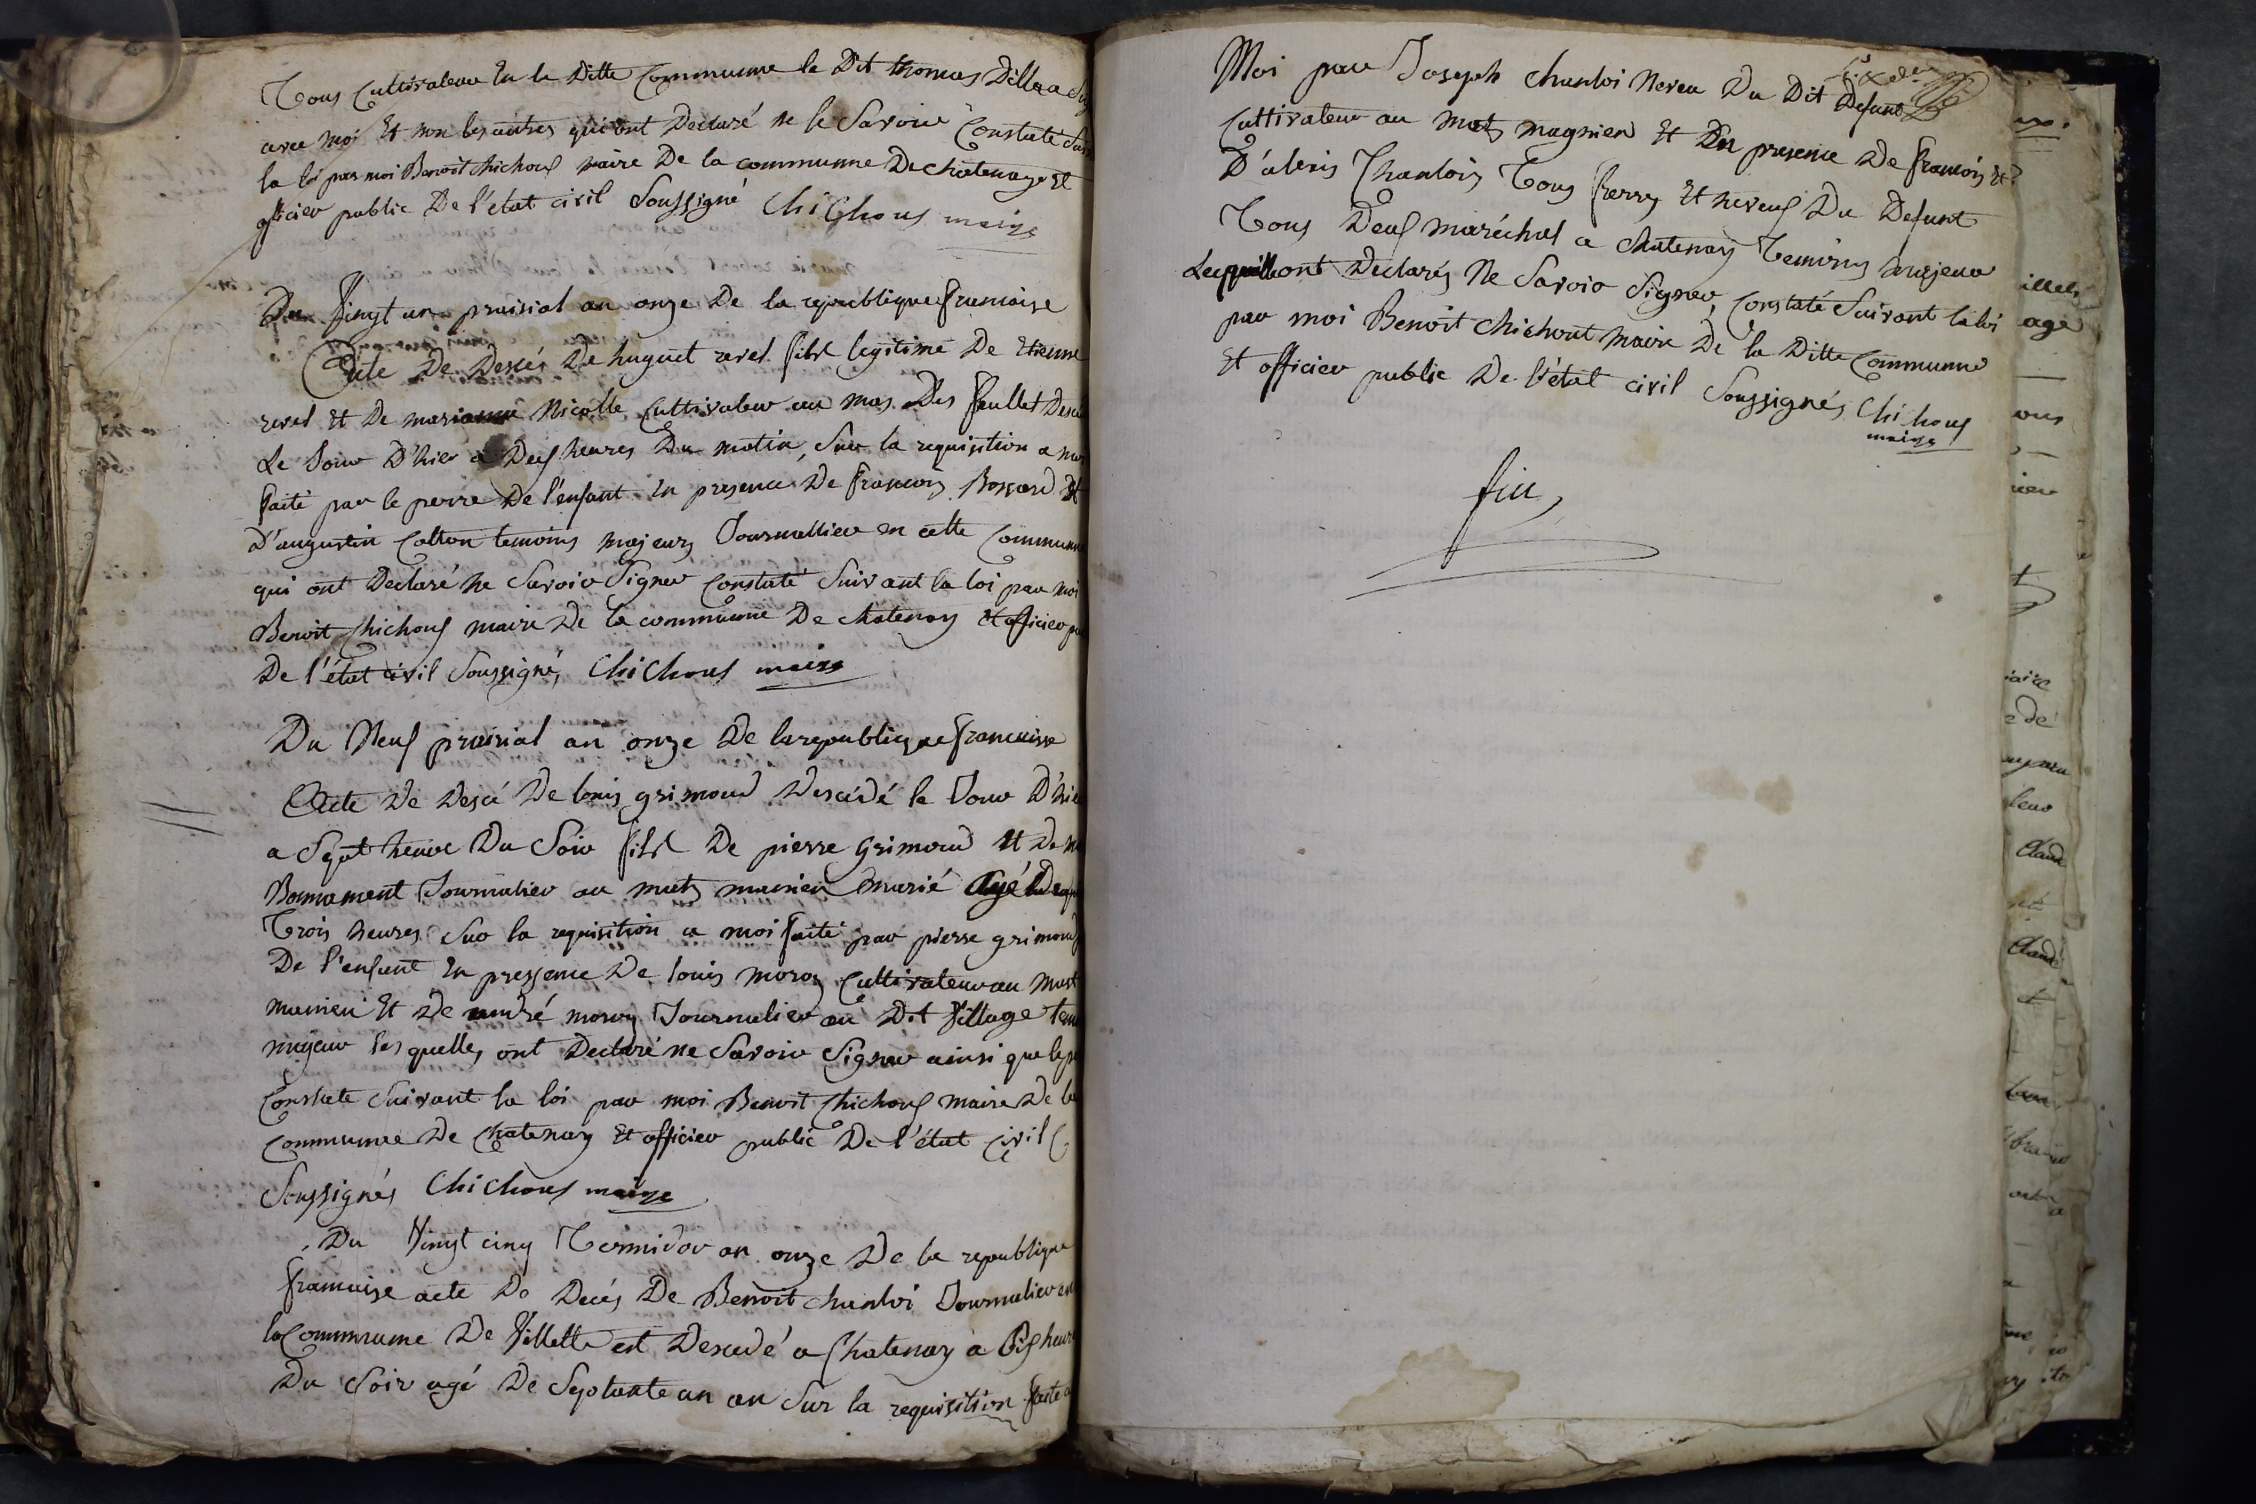 Tous Cultivateur En la Ditte Communne le Dit thomas Dillea a
avec moi Et non les autres qui ont Declaré ne le Savoir Constaté
la loi par moi Benoit Chichouf maire De la communne De chatenay Et
officier public De l'état civil Soussigné Chichouf maire
Du Vingt un prairial an onze De la republique francaise
Acte De Descés De huguet revel fils legitime De Etienne
revel Et De marianne Nicolle Cultivateur au mas Des feullet
Le Jour D'hier a Deuf heures Du matin, Sur la requisition a moi
faite par le perre De l'enfant En presence De francois Bossard Et
D'augustin Cotton temoins majeurs Journallier en cette Communne
qui ont Declaré ne Savoir Signer Constaté Suivant la loi par moi
Benoit Chichouf maire De la communne De chatenay Et officier
De l'état civil Soussigné, Chichouf maire
Du Neuf prairial an onze De la republique francaise
Acte De Descé De louis grimoud Descédé le Jour D'hier
a Sept heure Du Soir fils De pierre Grimoud Et De
Bonnament Journalier au mats manien marié Agé
Trois heures Sur la requisition a moi faite par pierre grimoud
De l'enfant En pressence De louis moroz Cultivateur au mast
manien Et De andré moroz Journalier au Dit Village
majeur les quelles ont Declaré ne Savoir Signer ainsi que le
Constate Suivant la loi par moi Benoit Chichouf maire De la
Communne De Chatenay Et officier public De l'état Civil
Soussignés Chichouf maire
Du Vingt cinq Termidor an onze De la republique
francaise acte De Decés De Benoit chanloi Journalier
la Communne De Villette est Descedé a Chatenay a heures
Du Soir agé De Septante un an Sur la requisition faite a
Moi par Joseph chanloi Neveu Du Dit Defunt
Cultivateur au mats magnien Et En presence De francois Et
D'alexis Chanloix Tous frerry Et neveuf Du Defunt
Tous Deuf maréchal a chatenay Temoins majeur
Lesquille ont Declarés Ne Savoir Signer, Constaté Suivant la loi
par moi Benoit Chichout maire De la Ditte Communne
Et officier public De l'état civil Soussignés Chichouf
maire
fin